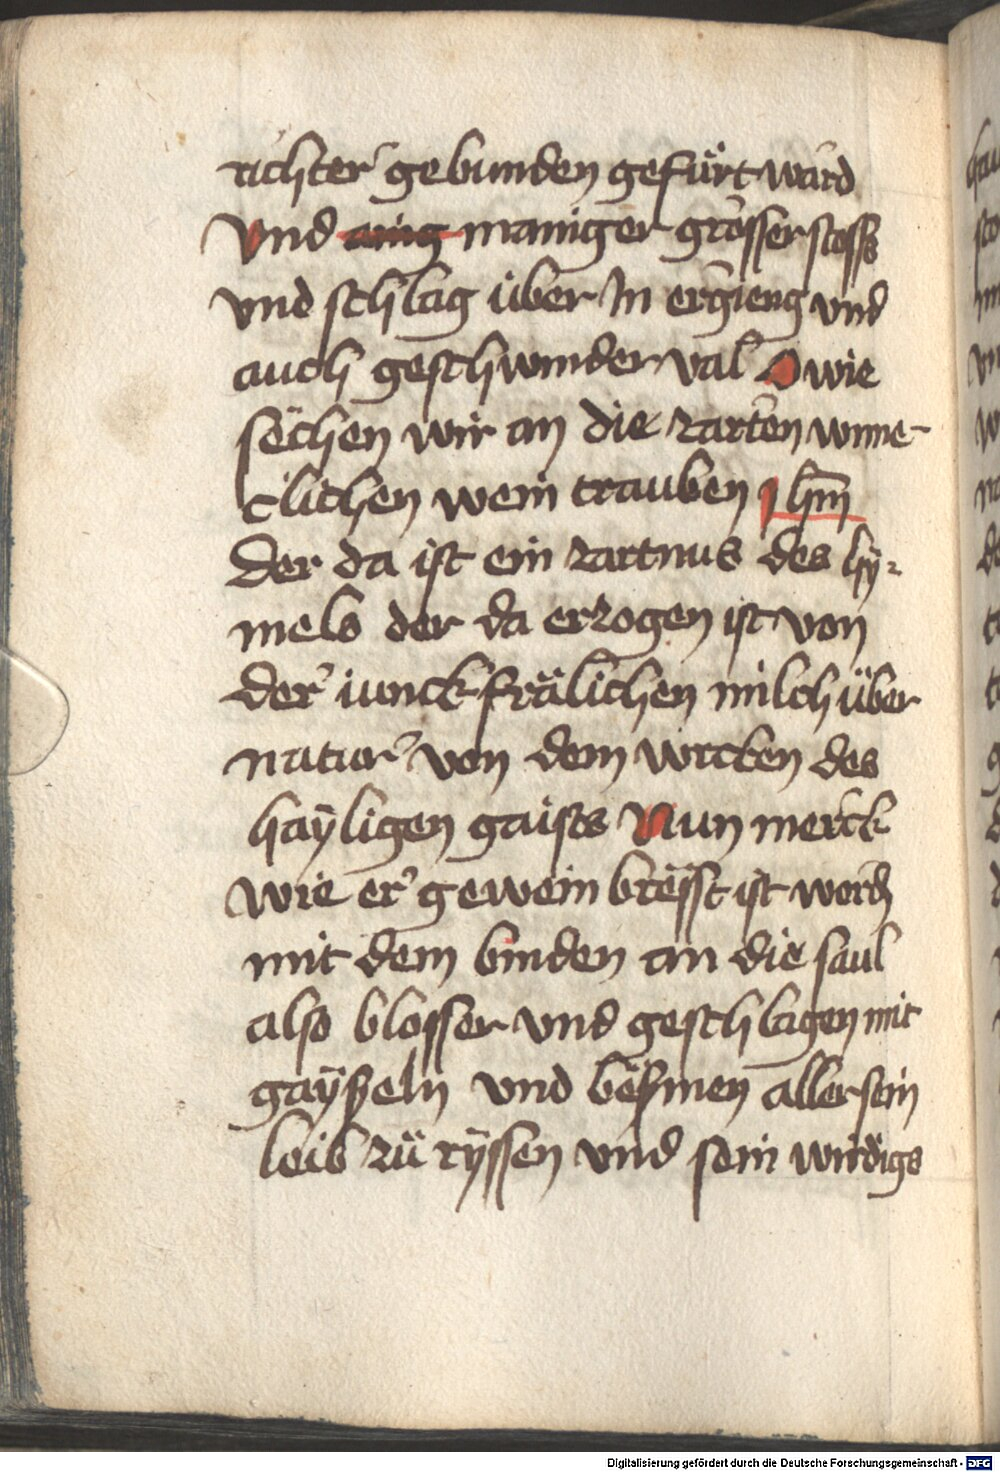 richter gebunden gefürt ward
Vnd ainig maniger grosser stosß
vnd schlag über In ergieng vnd
auch geschwinder val O wie
sëchen wir an die zarten winne-
clichen wein trauben Jhm
Der da ist ein zartnus des hÿ-
mels der da erzogen ist von
der iunckfrälichen milch über
natur von dem wircken des
haÿligen gaists Nun merck
wie er gewein brësst ist word
mit dem binden an die saul
also blosser vnd geschlagen mit
gaÿsseln vnd bësmen aller sein
leib zü rÿssen vnd sein wirdigs
Digitalisierung gefördert durch die Deutsche Forschungsgemeinschaft - DFG